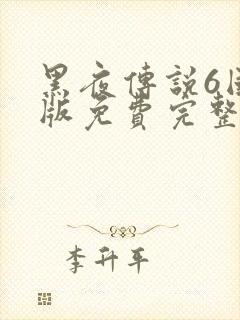 黑夜傳說6
版免費完整
李升平